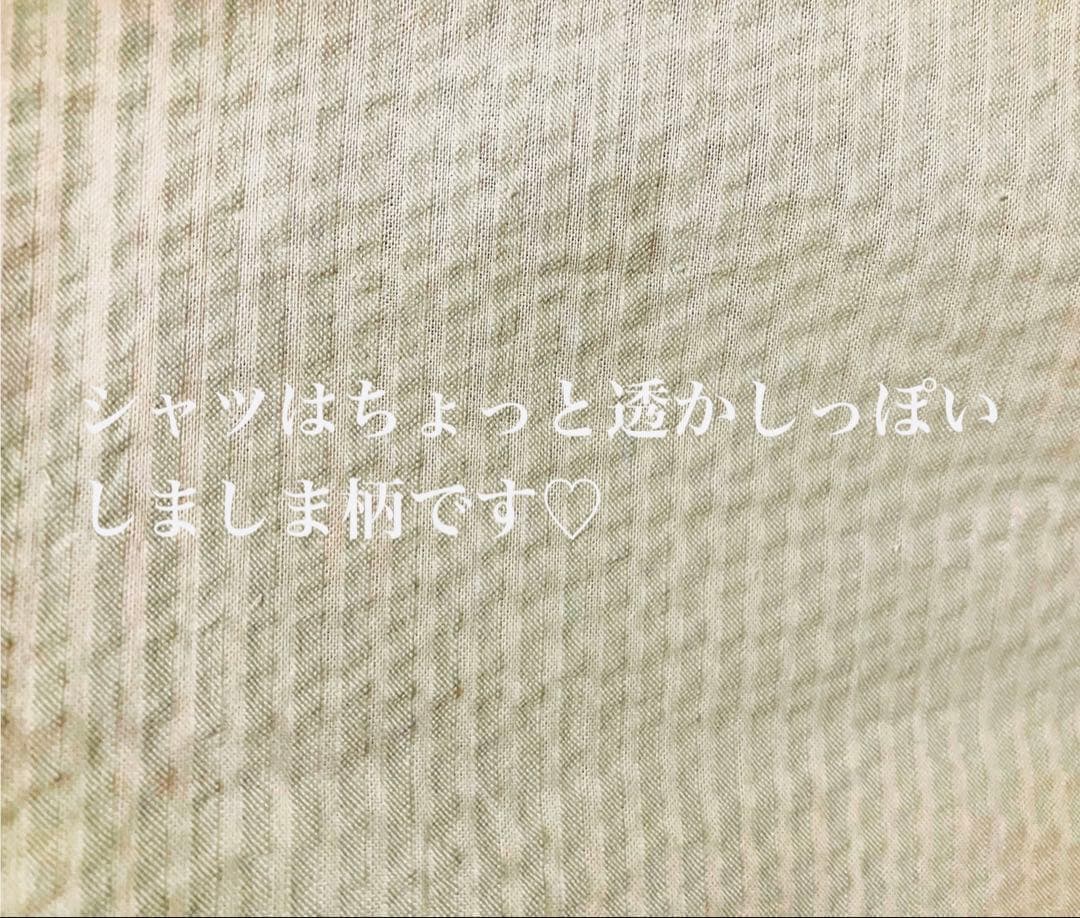 シャツはちょっと透かしっぽい
しましま柄です♡